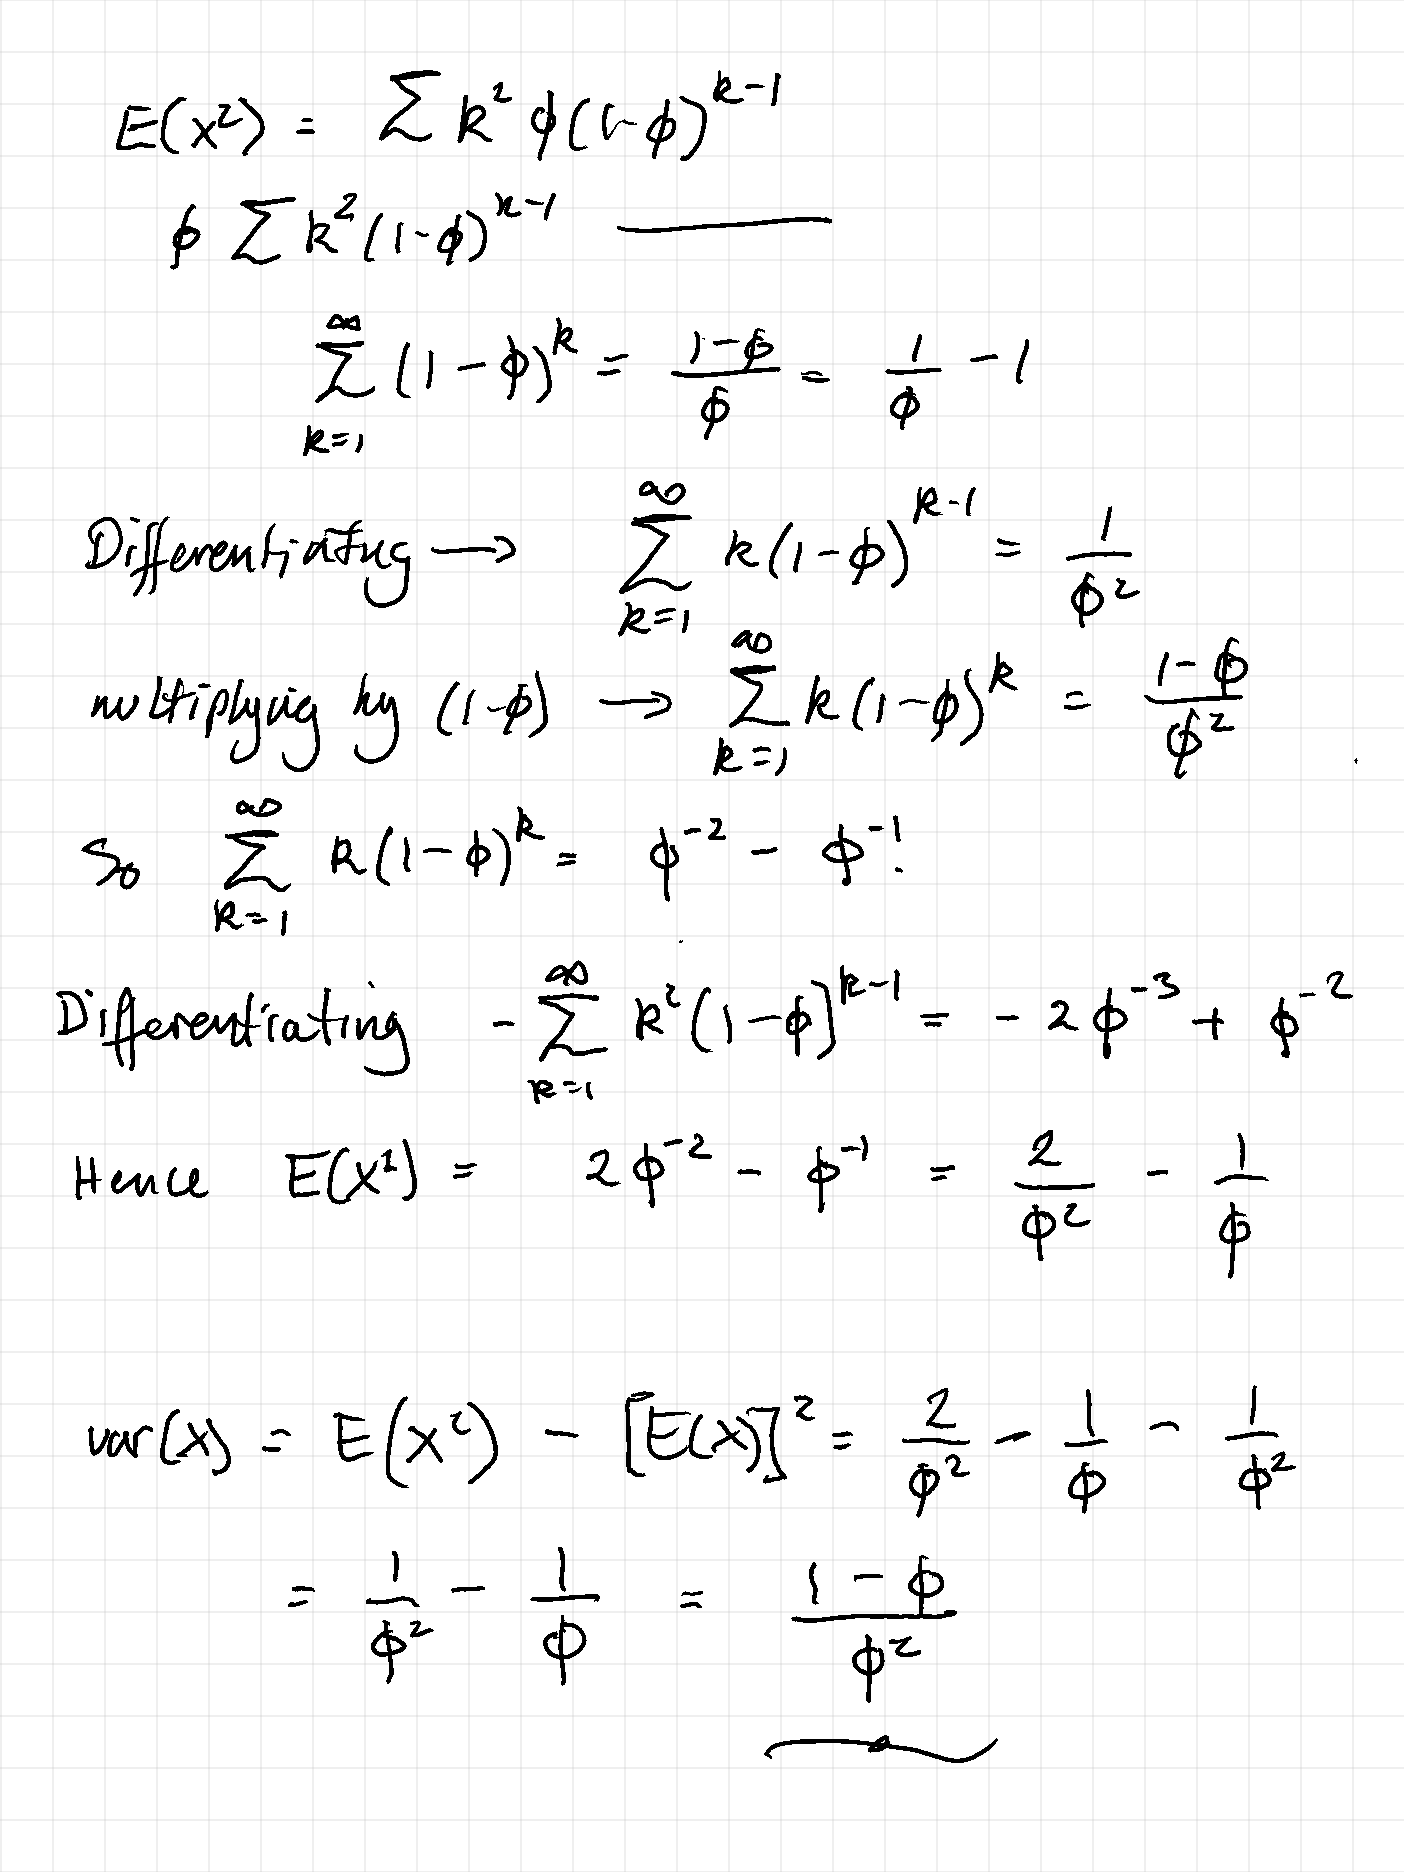 E(x²) = Σ k² ϕ(1-ϕ)^{k-1}
ϕ Σ k² (1-ϕ)^{k-1} ———
Σ_{k=1}^{∞} (1-ϕ)^k = (1-ϕ)/ϕ = 1/ϕ - 1
Differentiating → Σ_{k=1}^{∞} k(1-ϕ)^{k-1} = 1/ϕ²
multiplying by (1-ϕ) → Σ_{k=1}^{∞} k(1-ϕ)^k = (1-ϕ)/ϕ²
So Σ_{k=1}^{∞} k(1-ϕ)^k = ϕ^{-2} - ϕ^{-1}.
Differentiating -Σ_{k=1}^{∞} k²(1-ϕ)^{k-1} = -2ϕ^{-3} + ϕ^{-2}
Hence E(X²) = 2ϕ^{-2} - ϕ^{-1} = 2/ϕ² - 1/ϕ
var(X) = E(X²) - [E(X)]² = 2/ϕ² - 1/ϕ - 1/ϕ²
= 1/ϕ² - 1/ϕ = (1-ϕ)/ϕ²